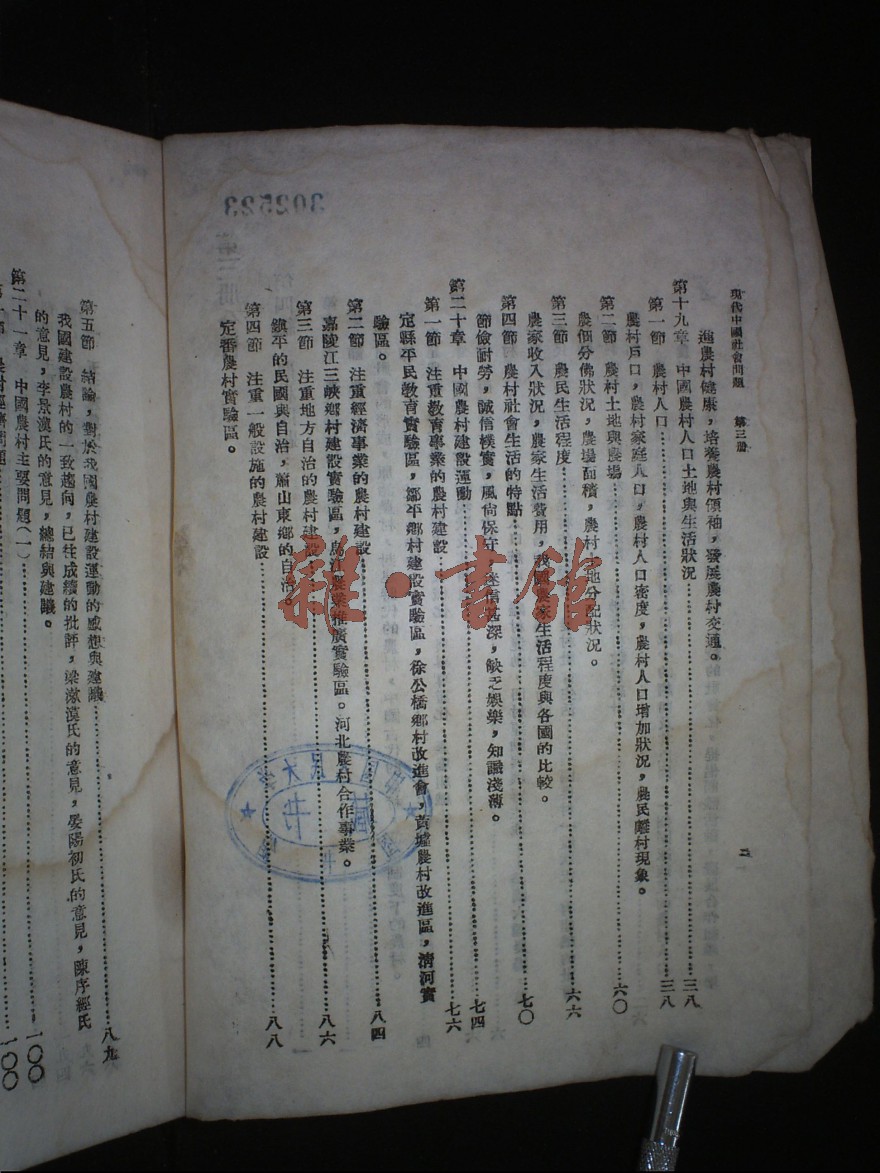 現代中國社會問題 第三册
二
進農村健康，培養農村領袖，發展農村交通。
第十九章 中國農村人口土地與生活狀況⋯⋯三八
第一節 農村人口⋯⋯三八
農村戶口，農村家庭人口，農村人口密度，農村人口增加狀況，農民離村現象。
第二節 農村土地與農場⋯⋯六〇
農佃分佈狀況，農場面積，農村土地分配狀況。
第三節 農民生活程度⋯⋯六六
農家收入狀況，農家生活費用，我國農家生活程度與各國的比較。
第四節 農村社會生活的特點⋯⋯七〇
節儉耐勞，誠信樸實，風尚保守，迷信甚深，缺乏娛樂，知識淺薄。⋯⋯七四
第二十章 中國農村建設運動⋯⋯七六
第一節 注重教育事業的農村建設
定縣平民教育實驗區，鄒平鄉村建設實驗區，徐公橋鄉村改進會，黃墟農村改進區，清河實
驗區。
第二節 注重經濟事業的農村建設⋯⋯八四
嘉陵江三峽鄉村建設實驗區，烏江農業推廣實驗區。河北農村合作事業。
第三節 注重地方自治的農村建設⋯⋯八六
鎮平的民國與自治，蕭山東鄉的自治。
第四節 注重一般設施的農村建設⋯⋯八八
定番農村實驗區。
第五節 結論，對於我國農村建設運動的感想與建議⋯⋯八九
我國建設農村的一致趨向，已往成績的批評，梁漱溟氏的意見，晏陽初氏的意見，陳序經氏
的意見，李景漢氏的意見，總結與建議。
第二十一章 中國農村主要問題（一）⋯⋯一〇〇
第一節 農村經濟問題⋯⋯一〇〇
302523
雜·書館